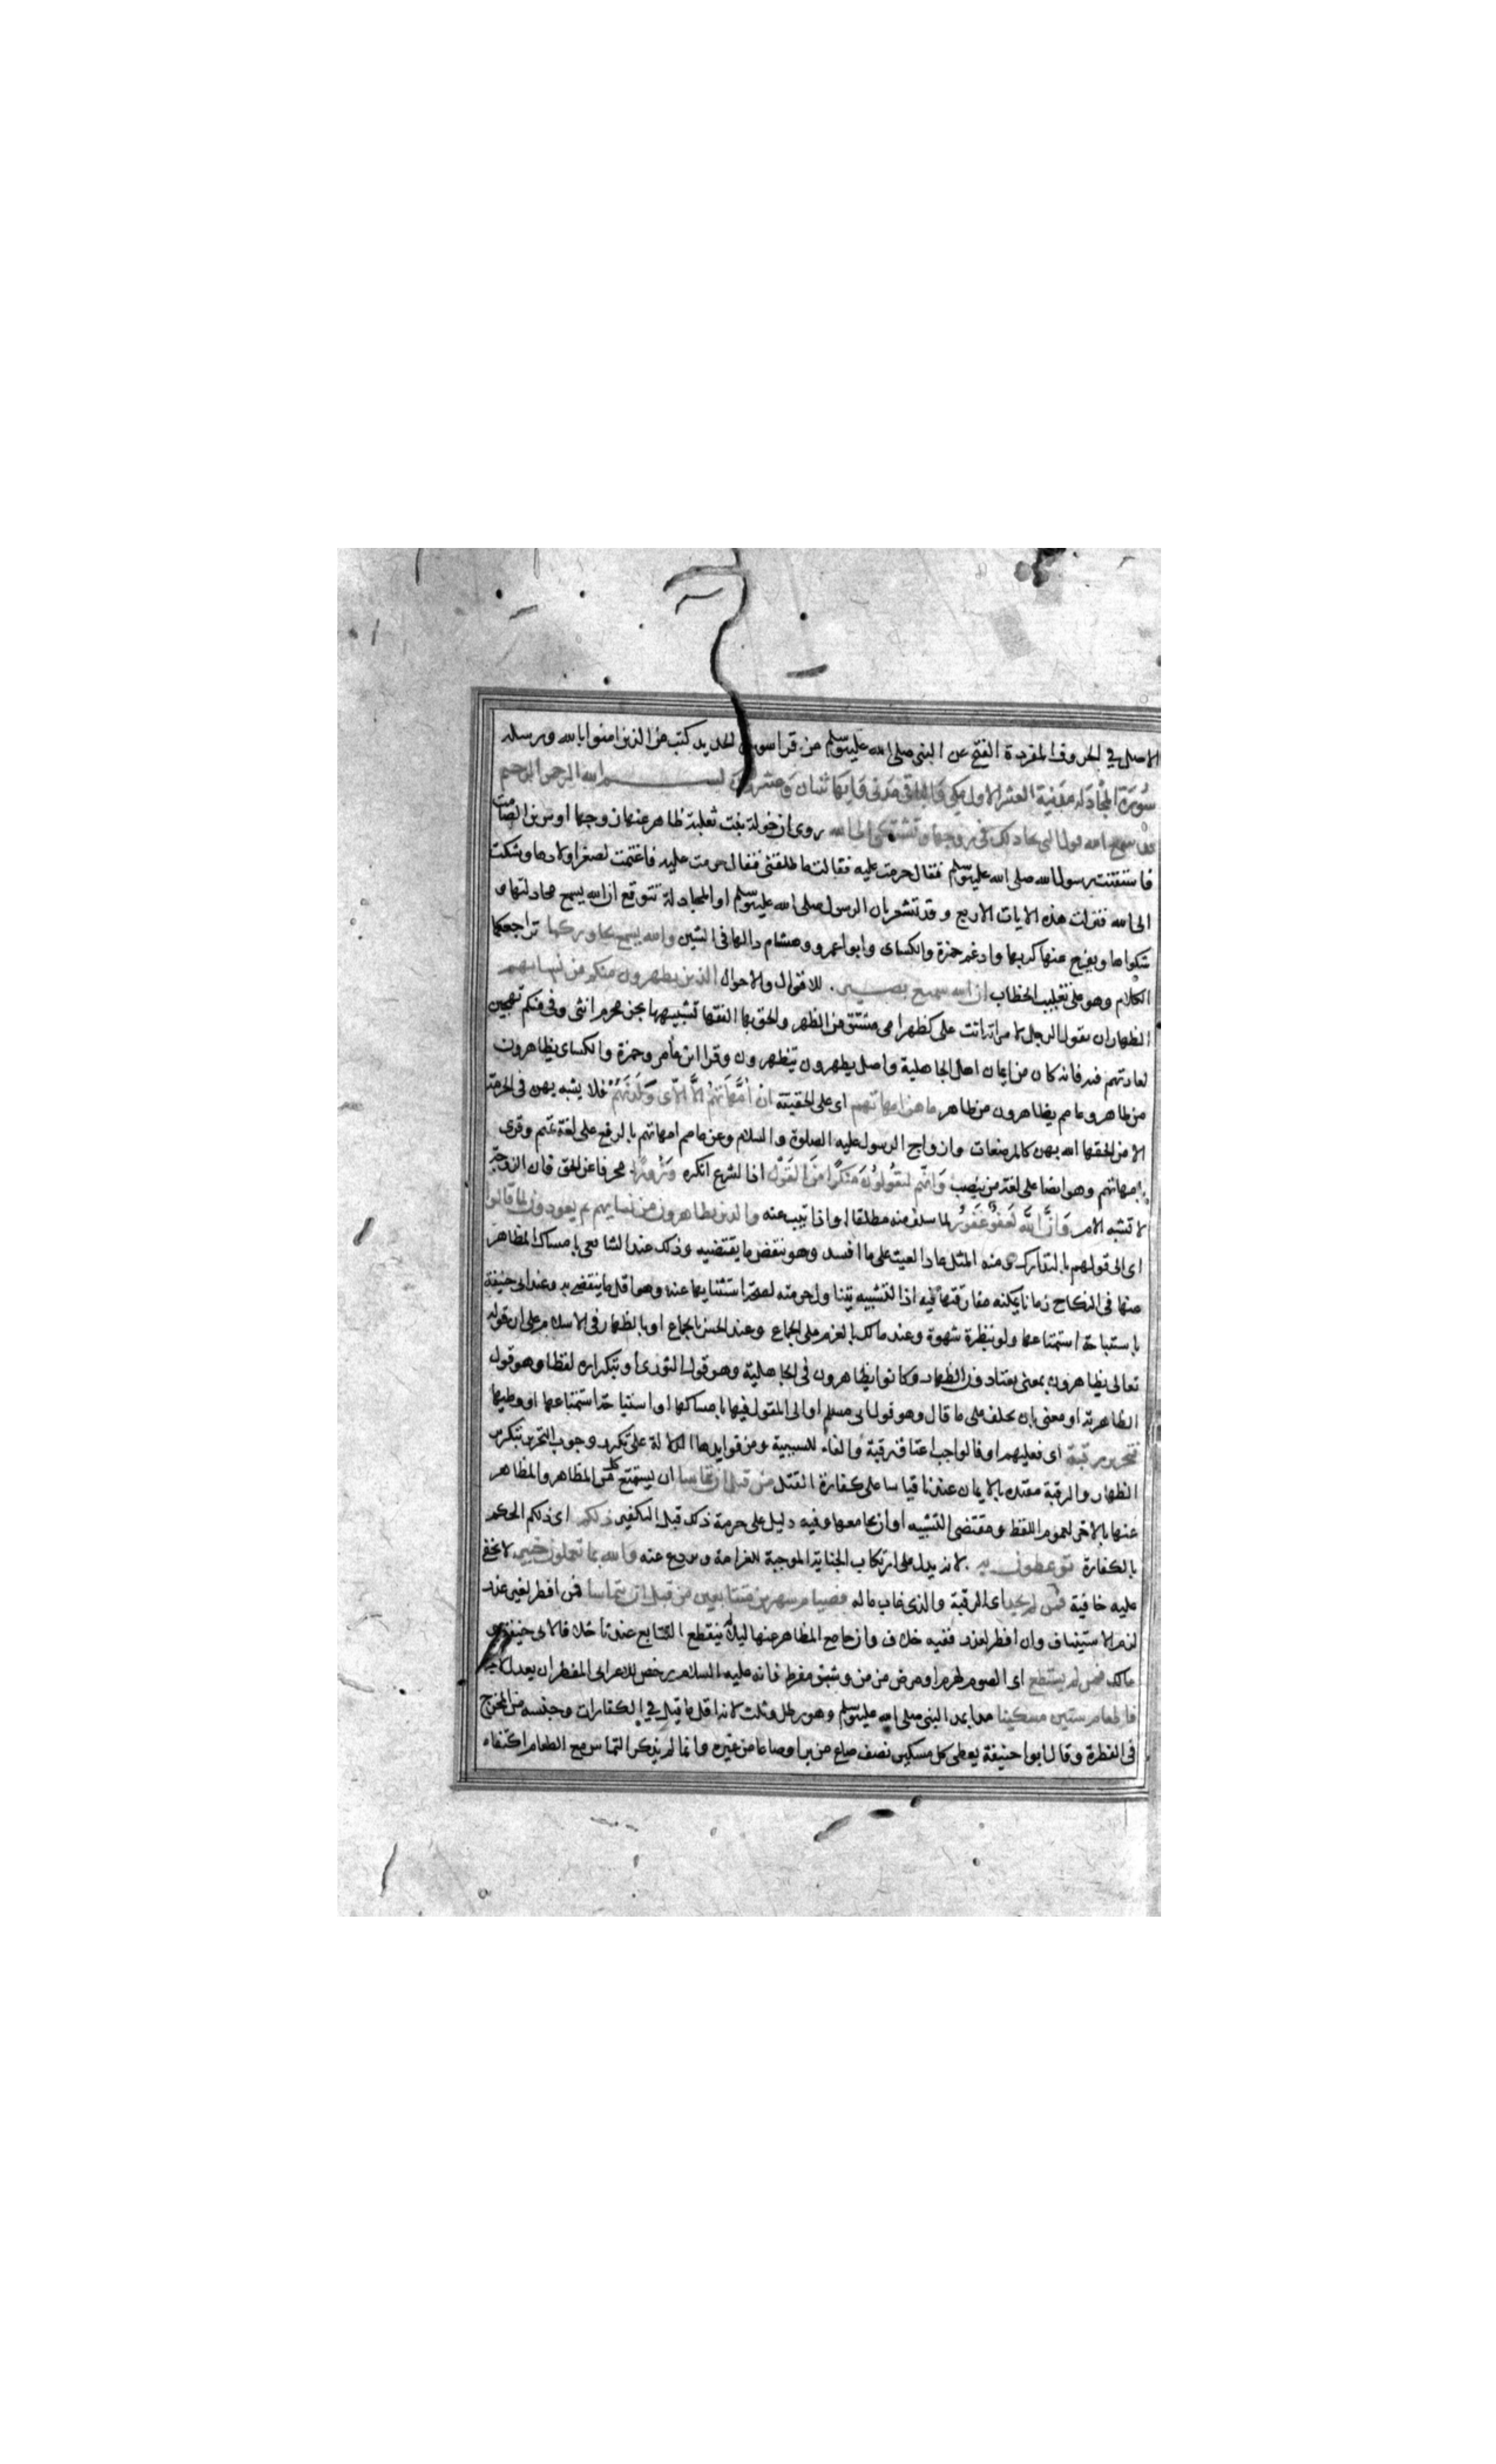 الاصل في الحروف المفردة الفتح عن النبي صلى الله عليه وسلم من قرا سورة الحديد كتب من الذين امنوا بالله ورسله
سُورَة المجادلة مدنية وقيل العشر الاول مكي والباقي مدني وايها ثنتان وعشرون بسم الله الرحمن الرحيم
قد سمع الله قول التي تجادلك في زوجها وتشتكي الى الله روى ان خولة بنت ثعلبة ظاهر عنها زوجها اوس بن الصامت
فاستفتت رسول الله صلى الله عليه وسلم فقال حرمت عليه فقالت ما طلقني فقال حرمت عليه فاغتمت لصغر اولادها وشكت
الى الله فنزلت هذه الايات الاربع وقد تشعر بان الرسول صلى الله عليه وسلم او المجادلة تتوقع ان الله يسمع مجادلتها و
شكواها ويفرج عنها كربها وادغم حمزة والكساى وابو عمرو وهشام دالها في السين والله يسمع تحاوركما تراجعكما
الكلام وهو على تغليب الخطاب ان الله سميع بصير . للاقوال والاحوال الذين يظهرون منكم من نسائهم
الظهار ان يقول الرجل لامراته انت على كظهر امى مشتق من الظهر والحق بها الفقها تشبيهها بجزء محرم انثى وفي منكم تهجين
لعادتهم فيه فانه كان من ايمان اهل الجاهلية واصل يظهرون يتظهرون وقرا ابن عامر وحمزة والكساى يظاهرون
من اظاهر وعاصم يظاهرون من ظاهر ما هن امهاتهم اى على الحقيقة ان امهاتهم الا اللاى ولدنهم فلا يشبه بهن في الحرمة
الا من الحقها الله بهن كالمرضعات وازواج الرسول عليه الصلوة والسلام وعن عاصم امهاتهم بالرفع على لغة تميم وقرى
بامهاتهم وهو ايضا على لغة من ينصب وانهم ليقولون منكرا من القول اذ الشرع انكره وزورا محرفا عن الحق فان الزوجة
لا تشبه الام وان الله لعفو غفور لما سلف منه مطلقا او اذا تيب عنه والذين يظاهرون من نسائهم ثم يعودون لما قالوا
اى الى قولهم بالتدارك ومنه المثل عاد الغيث على ما افسد وهو بنقض ما يقتضيه وذلك عند الشافعى بامساك المظاهر
عنها في النكاح زمانا يمكنه مفارقتها فيه اذ التشبيه يتناول حرمته لصحة استثنايها عنه وهو اقل ما ينتقض به وعند ابى حنيفة
باستباحة استمتاعها ولو بنظرة شهوة وعند مالك بالعزم على الجماع وعند الحسن بالجماع او بالظهار في الاسلام على ان قوله
تعالى يظاهرون بمعنى يعتادون الظهار وكانوا يظاهرون في الجاهلية وهو قول الثورى او بتكراره لفظا وهو قول
الظاهرية او معنى بان يحلف على ما قال وهو قول ابى مسلم او الى المقول فيها بامساكها او استباحة استمتاعها او وطيها
فتحرير رقبة اى فعليهم او فالواجب اعتاق رقبة والفاء للسببية ومن فوايدها الدلالة على تكرر وجوب التحرير بتكرر
الظهار والرقبة مقيده بالايمان عندنا قياسا على كفارة القتل من قبل ان يتماسا ان يستمتع كل من المظاهر والمظاهر
عنها بالاخر لعموم اللفظ ومقتضى التشبيه او ان يجامعها وفيه دليل على حرمة ذلك قبل التكفير ذلكم اى ذلكم الحكم
بالكفارة توعظون به . لانه يدل على ارتكاب الجناية الموجبة للغرامة ويردع عنه والله بما تعملون خبير لا تخفى
عليه خافية فمن لم يجد اى الرقبة والذى غاب ماله فصيام شهرين متتابعين من قبل ان يتماسا فمن افطر لغير عذر
لزمه الاستيناف وان افطر لعذر ففيه خلاف وان جامع المظاهر عنها ليلا لم ينقطع التتابع عندنا خلافا لابى حنيفة و
مالك فمن لم يستطع اى الصوم لهرم او مرض مزمن وشبق مفرط فانه عليه السلام رخص للاعرابى المفطر ان يعدل لاجله
فاطعام ستين مسكينا مدا بمد النبى صلى الله عليه وسلم وهو رطل وثلث لانه اقل ما قيل في الكفارات وجنسه من المخرج
في الفطرة وقال ابو حنيفة يعطى كل مسكين نصف صاع من بر او صاعا من غيره وانما لم يذكر التماس مع الطعام اكتفاء